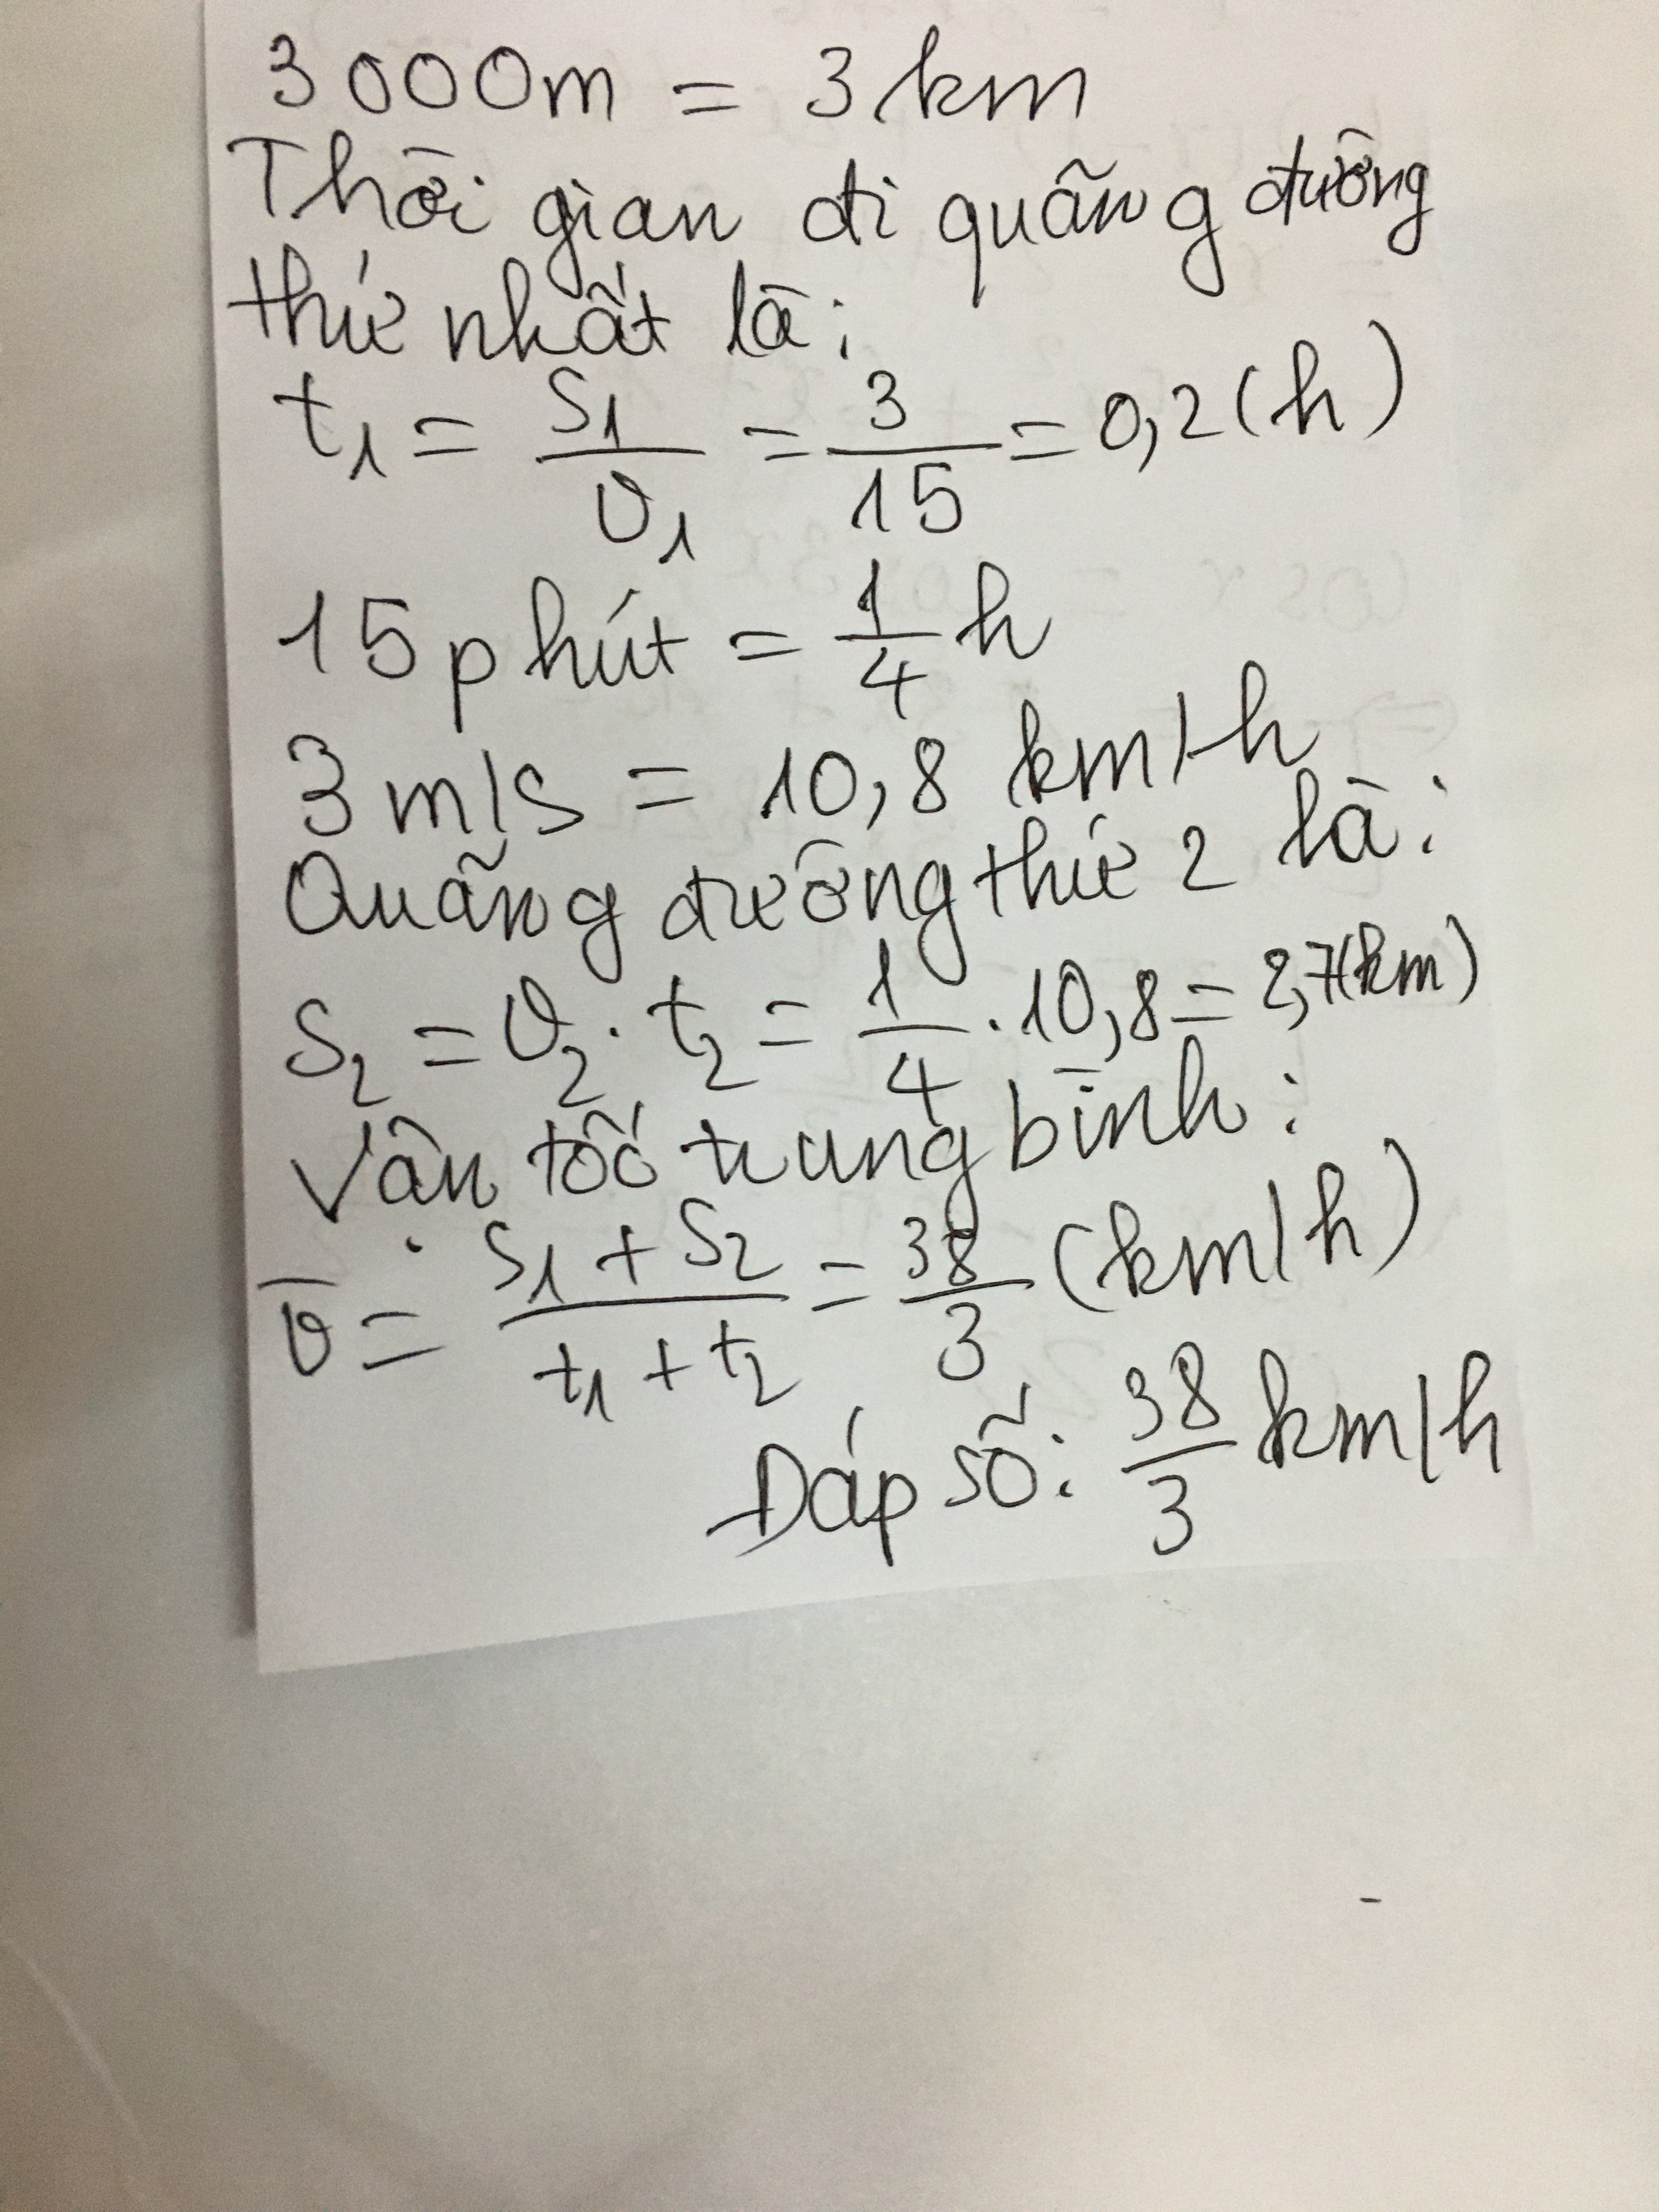 3000m = 3km
Thời gian đi quãng đường
thứ nhất là:
t₁ = S₁/v₁ = 3/15 = 0,2 (h)
15 phút = 1/4 h
3 m/s = 10,8 km/h
Quãng đường thứ 2 là:
S₂ = v₂ . t₂ = 1/4 . 10,8 = 2,7 (km)
Vận tốc trung bình:
v̅ = (S₁ + S₂)/(t₁ + t₂) = 38/3 (km/h)
Đáp số: 38/3 km/h